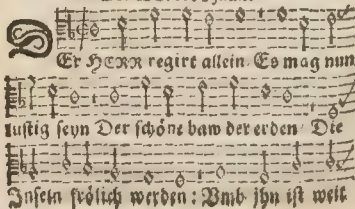 DEr HERR regirt allein Es mag nun
lustig seyn Der schöne baw der erden Die
Inseln frölich werden: Vmb jhn ist weit